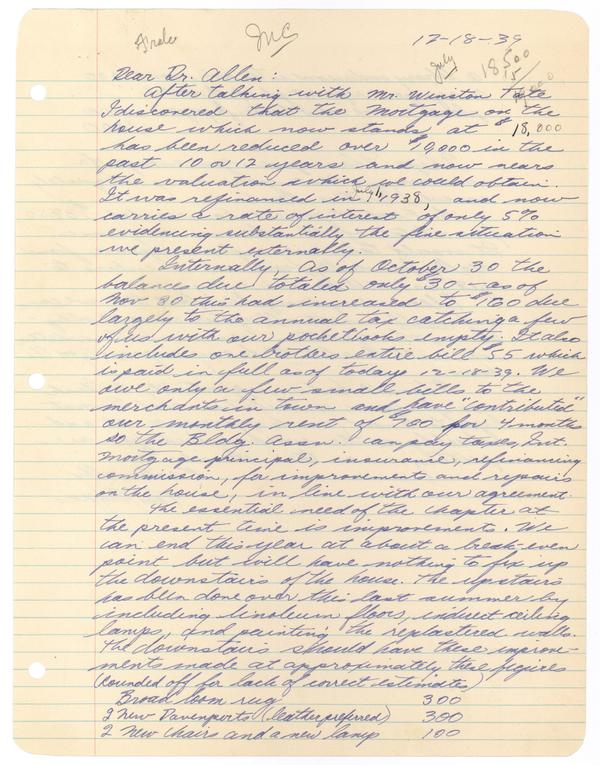 INC 12-18-39
July 18,500
15
Dear Dr. Allen:
After talking with Mr. Winston Tate
I discovered that the Mortgage on the
house which now stands at $18,000
has been reduced over $9,000 in the
past 10 or 12 years and now nears
the valuation which we could obtain.
It was refinanced in July, 1938, and now
carries a rate of interest of only 5%
evidencing substantially the fine situation
we present externally.
Internally, as of October 30 the
balances due totaled only $30 - as of
Nov 30 this had increased to $160 due
largely to the annual tax catching a few
of us with our pocketbooks empty. It also
includes one brothers entire bill $55 which
is paid in full as of today 12-18-39. We
owe only a few small bills to the
merchants in town and have "contributed"
our monthly rent of $200 for 4 months
so the Bldg. Assn. can pay taxes, Int.
Mortgage principal, insurance, refinancing
commission, for improvements and repairs
on the house, in line with our agreement
The essential need of the chapter at
the present time is improvements. We
can end this year at about a break-even
point but will have nothing to fix up
the downstairs of the house. The upstairs
has been done over this last summer by
including linoleum floors, indirect ceiling
lamps, and painting the replastered walls.
The downstairs should have these improve-
ments made at approximately these figures
(rounded off for lack of correct estimates)
Broad loom rug 300
2 New Davenports (leather preferred) 300
2 New chairs and a new lamp 100